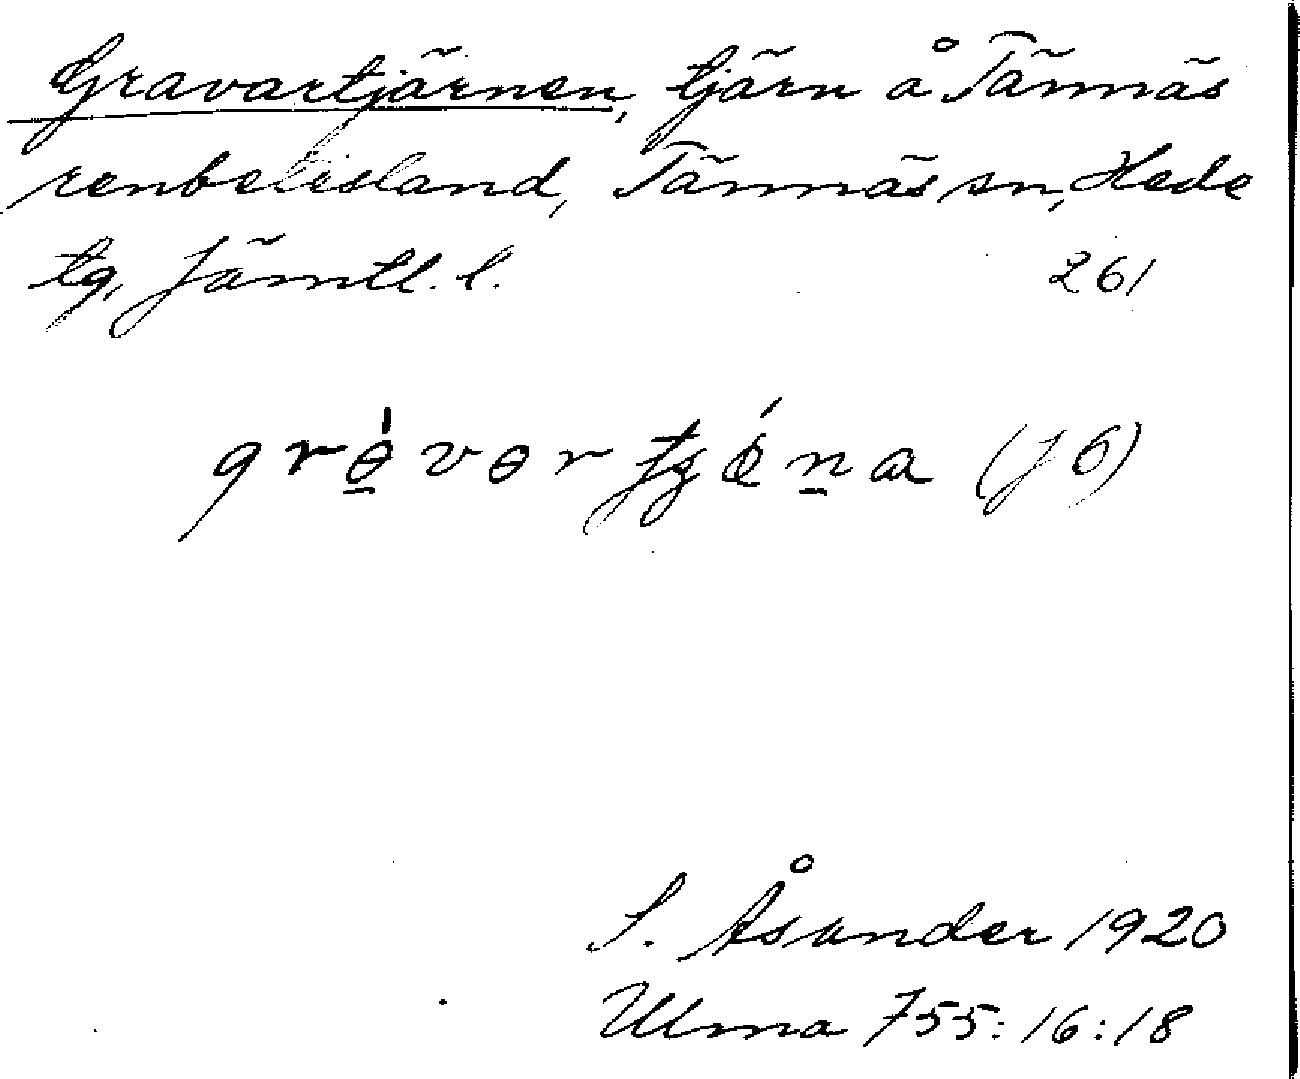 Gravartjärnen, tjärn å Tännäs
renbetesland, Tännäs sn, Hede
tg, Jämtl. l. 261
(J 6)
S. Åsander 1920
Ulma 755:16:18